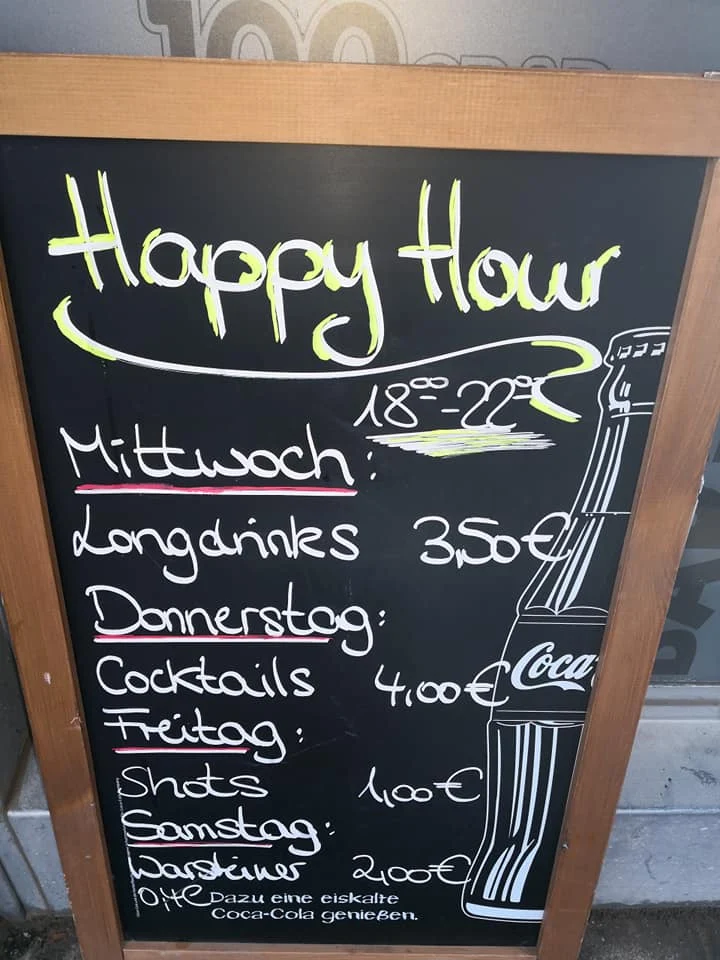 100GRAD
Happy Hour
18⁰⁰-22⁰⁰
Mittwoch:
Longdrinks 3,50€
Donnerstag:
Cocktails 4,00€
Freitag:
Shots 1,00€
Samstag:
Warsteiner 2,00€
0,4l
Dazu eine eiskalte
Coca-Cola genießen.
Coca